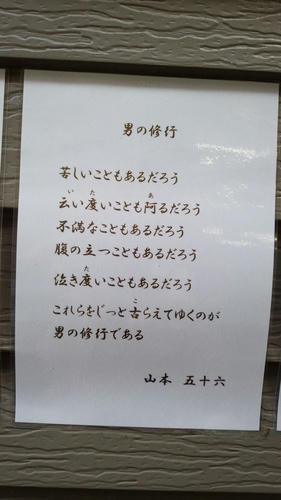 男の修行
苦しいこともあるだろう
云い度いことも阿るだろう
不満なこともあるだろう
腹の立つこともあるだろう
泣き度いこともあるだろう
これらをじっと古らえてゆくのが
男の修行である
山本 五十六